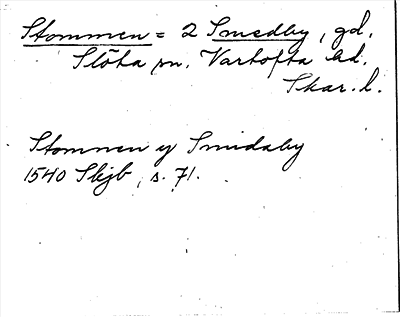 Stommen = 2 Smedby, gd,
Slöta sn, Vartofta hd.
Skar. l.
Stommen y Smidaby
1540 Skjb, s. 71.